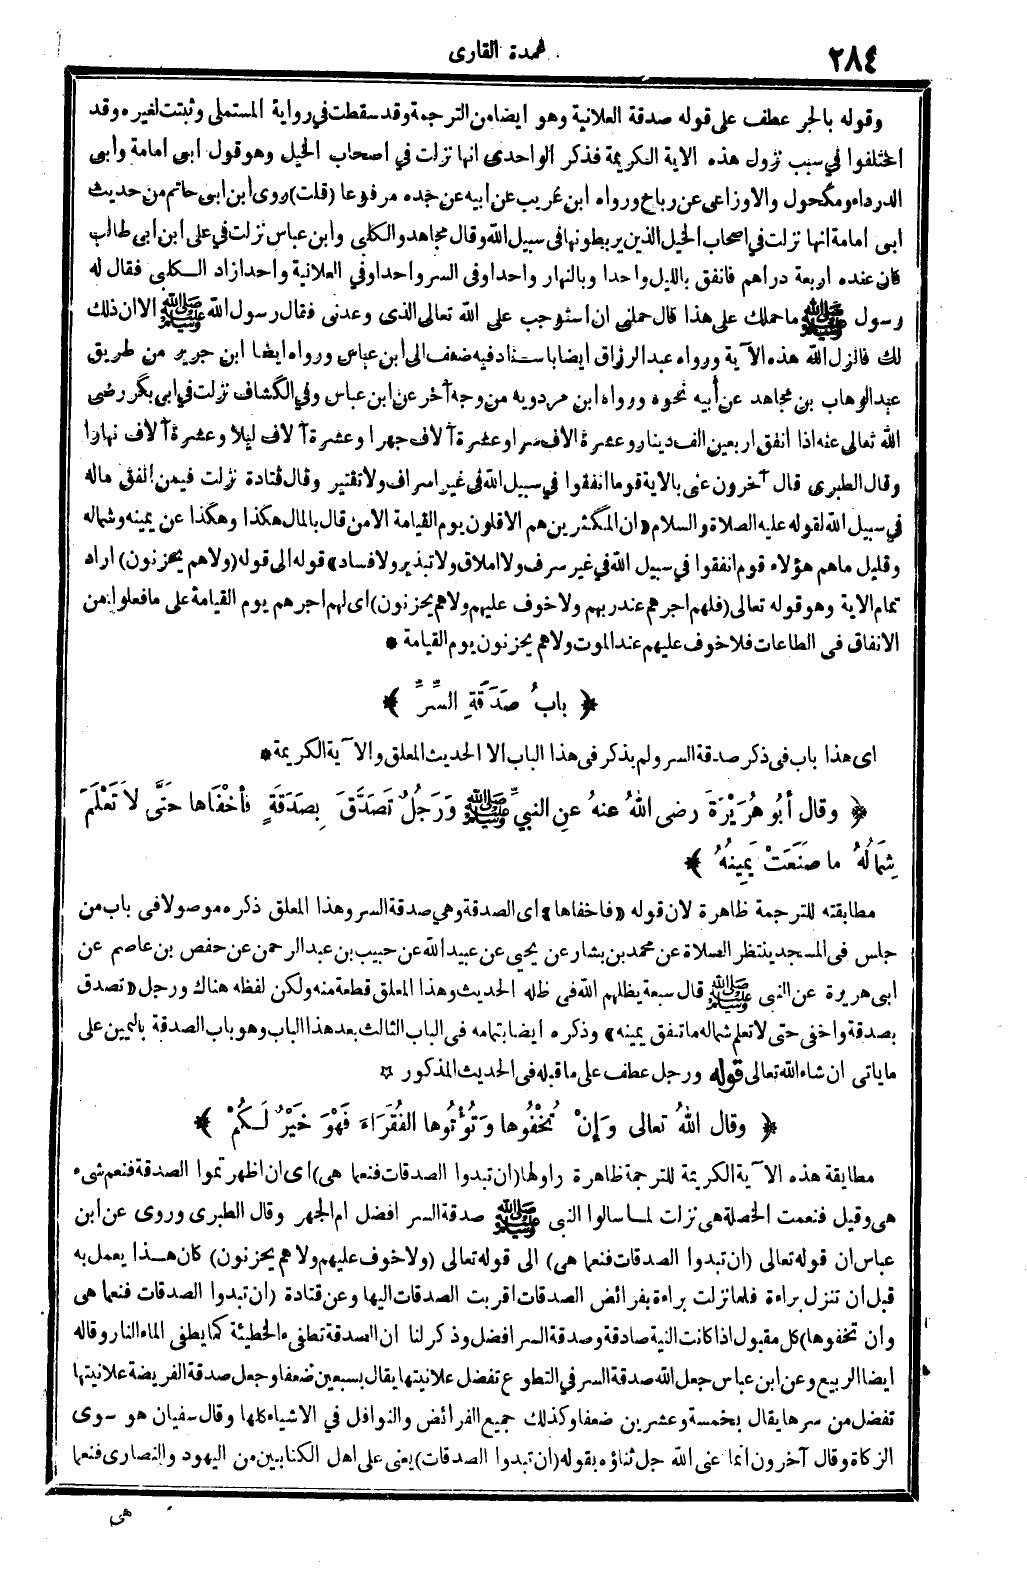 عمدة القارى
٢٨٤
وقوله بالجر عطف على قوله صدقة العلانية وهو ايضا من الترجمة وقد سقطت في رواية المستملى وثبتت لغيره وقد
اختلفوا في سبب نزول هذه الآية الكريمة فذكر الواحدى انها نزلت في اصحاب الخيل وهو قول ابى امامة وابى
الدرداء ومكحول والاوزاعى عن رباح ورواه ابن غريب عن ابيه عن جده مرفوعا (قلت) روى ابن ابى حاتم من حديث
ابى امامة انها نزلت في اصحاب الخيل الذين يربطونها في سبيل الله وقال مجاهد والكلبى وابن عباس نزلت في على ابن ابى طالب
كان عنده اربعة دراهم فانفق بالليل واحدا وبالنهار واحدا وفى السر واحدا وفي العلانية واحدا زاد الكلبى فقال له
رسول ﷺ ما حملك على هذا قال حملنى ان استوجب على الله تعالى الذى وعدنى فقال رسول الله ﷺ الا ان ذلك
لك فانزل الله هذه الآية ورواه عبد الرزاق ايضا باسناد فيه ضعف الى ابن عباس ورواه ايضا ابن جرير من طريق
عبد الوهاب بن مجاهد عن أبيه نحوه ورواه ابن مردويه من وجه آخر عن ابن عباس وفي الكشاف نزلت في ابى بكر رضى
الله تعالى عنه اذا انفق اربعين الف دينار وعشرة الاف سرا وعشرة آلاف جهرا وعشرة آلاف ليلا وعشرة آلاف نهارا
وقال الطبرى قال آخرون عنى بالاية قوما انفقوا في سبيل الله فى غير اسراف ولا تقتير وقال قتادة نزلت فيمن انفق ماله
في سبيل الله لقوله عليه الصلاة والسلام «ان المكثرين هم الاقلون يوم القيامة الا من قال بالمال هكذا وهكذا عن يمينه وشماله
وقليل ما هم هؤلاء قوم انفقوا في سبيل الله في غير سرف ولا املاق ولا تبذير ولا فساد» قوله الى قوله (ولا هم يحزنون) اراد
تمام الاية وهو قوله تعالى (فلهم اجرهم عند ربهم ولا خوف عليهم ولا هم يحزنون) اى لهم اجرهم يوم القيامة على ما فعلوا من
الانفاق فى الطاعات فلا خوف عليهم عند الموت ولا هم يحزنون يوم القيامة *
﴿ بابُ صَدَقَةِ السِّرِّ ﴾
اى هذا باب فى ذكر صدقة السر ولم يذكر فى هذا الباب الا الحديث المعلق والآية الكريمة *
﴿ وقال أبُو هُرَيْرَةَ رضى اللهُ عنهُ عنِ النبيِّ ﷺ وَرَجُلٌ تَصَدَّقَ بِصَدَقَةٍ فأخْفَاها حَتَّى لاَ تَعْلَمَ
شِمَالُهُ ما صَنَعَتْ يَمِينُهُ ﴾
مطابقته للترجمة ظاهرة لان قوله «فاخفاها» اى الصدقة وهي صدقة السر وهذا المعلق ذكره موصولا فى باب من
جلس فى المسجد ينتظر الصلاة عن محمد بن بشار عن يحيى عن عبيد الله عن حبيب بن عبد الرحمن عن حفص بن عاصم عن
ابى هريرة عن النبى ﷺ قال سبعة يظلهم الله فى ظله الحديث وهذا المعلق قطعة منه ولكن لفظه هناك ورجل «تصدق
بصدقة واخفى حتى لا تعلم شماله ما تنفق يمينه» وذكره أيضا بتمامه فى الباب الثالث بعد هذا الباب وهو باب الصدقة باليمين على
ما ياتى ان شاء الله تعالى قوله ورجل عطف على ما قبله فى الحديث المذكور ☆
﴿ وقال اللهُ تعالى وَإنْ تُخْفُوها وَتُؤْتُوها الفُقَرَاءَ فَهْوَ خَيْرٌ لَكُمْ ﴾
مطابقة هذه الآية الكريمة للترجمة ظاهرة واولها (ان تبدوا الصدقات فنعما هى) اى ان اظهرتموا الصدقة فنعم شىء
هى وقيل فنعمت الخصلة هى نزلت لما سالوا النبى ﷺ صدقة السر افضل ام الجهر وقال الطبرى وروى عن ابن
عباس ان قوله تعالى (ان تبدوا الصدقات فنعما هى) الى قوله تعالى (ولا خوف عليهم ولا هم يحزنون) كان هذا يعمل به
قبل أن تنزل براءة فلما نزلت براءة بفرائض الصدقات اقربت الصدقات اليها وعن قتادة (ان تبدوا الصدقات فنعما هى
وان تخفوها) كل مقبول اذا كانت النية صادقة وصدقة السر افضل وذكر لنا ان الصدقة تطفىء الخطيئة كما يطفى الماء النار وقاله
ايضا الربيع وعن ابن عباس جعل الله صدقة السر في التطوع تفضل علانيتها يقال بسبعين ضعفا وجعل صدقة الفريضة علانيتها
تفضل من سرها يقال بخمسة وعشرين ضعفا وكذلك جميع الفرائض والنوافل في الاشياء كلها وقال سفيان هو سوى
الزكاة وقال آخرون انما عنى الله جل ثناؤه بقوله (ان تبدوا الصدقات) يعنى على اهل الكتابين من اليهود والنصارى فنعما
هى